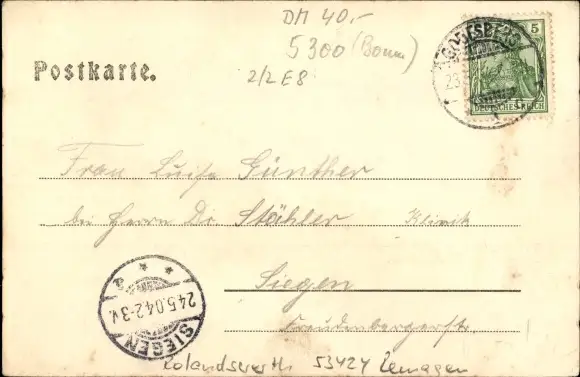 DM 40,-
5300 (Bonn)
2/2 E8
Postkarte.
GODESBERG
23
5
DEUTSCHES REICH
Frau Luise Günther
bei Herrn Dr. Stähler Klinik
Siegen
Freudenbergerstr.
SIEGEN
24.5.04.2-3 N.
Rolandswerth 53424 Remagen